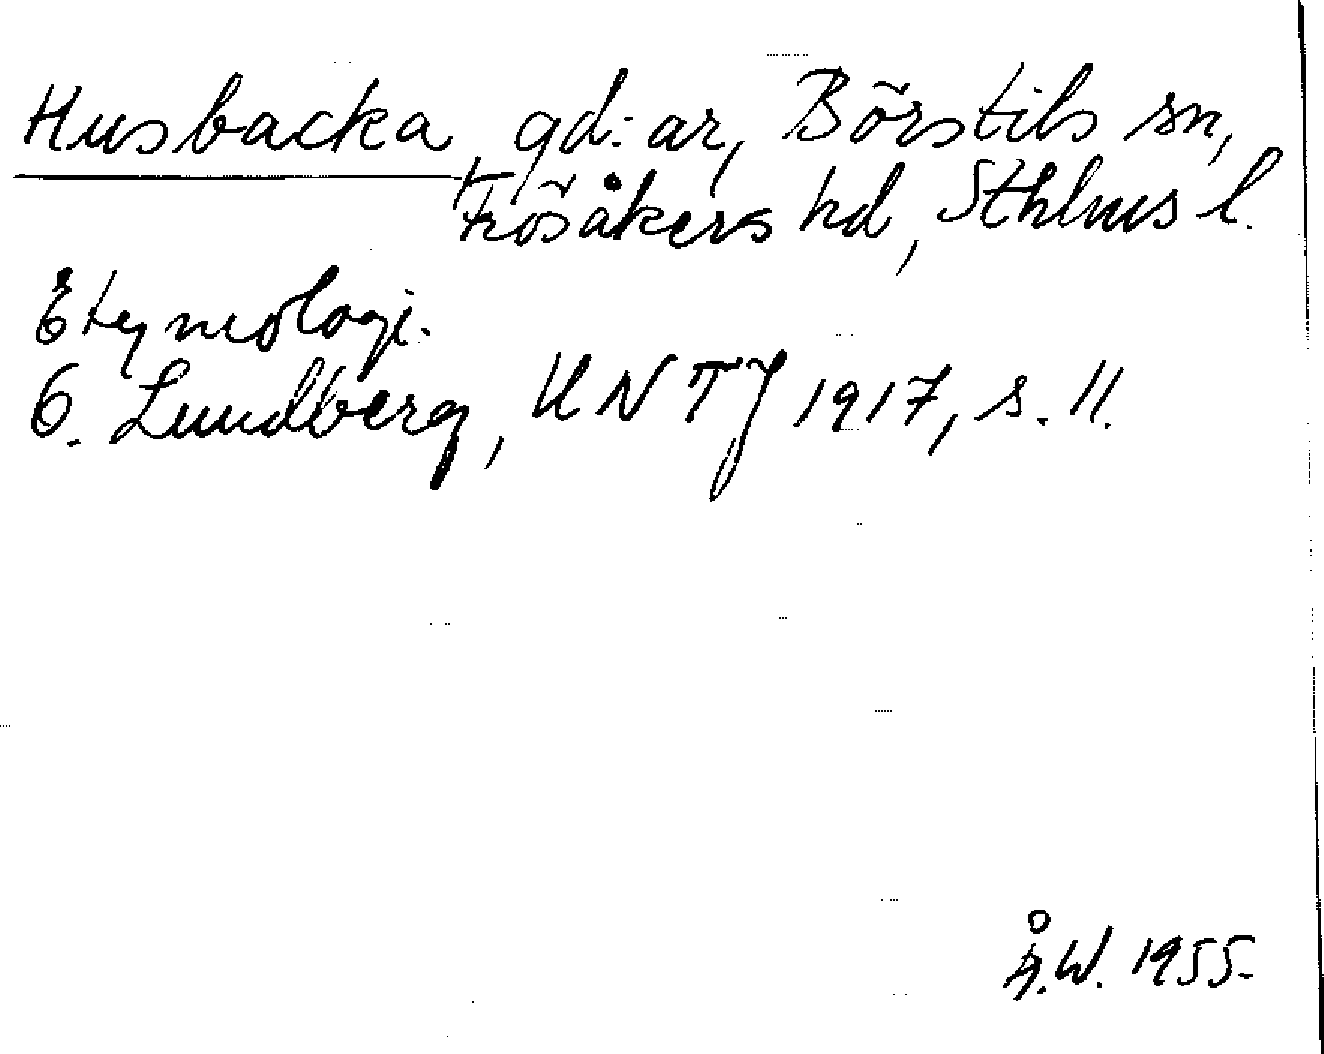 Husbacka gd:ar, Börstils sn,
Frösåkers hd, Sthlms l.
Etymologi.
O. Lundberg, UNTJ 1917, s. 11.
Å.W. 1955.